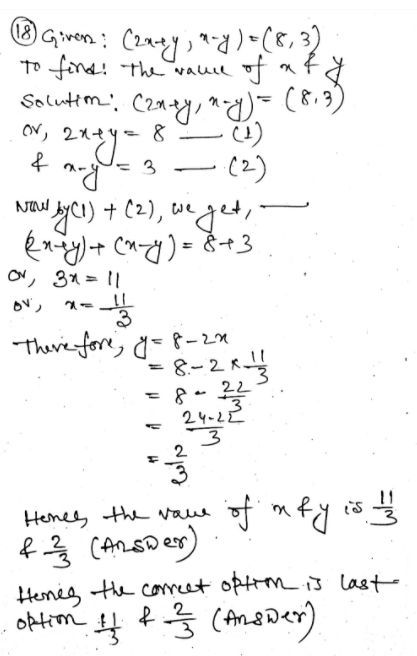 (18) Given: (2x+y, x-y) = (8,3)
To find: The value of x & y
Solution: (2x+y, x-y) = (8,3)
or, 2x+y = 8 — (1)
& x-y = 3 — (2)
Now by (1) + (2), we get, —
(2x+y) + (x-y) = 8+3
or, 3x = 11
or, x = 11/3
Therefore, y = 8-2x
= 8-2×11/3
= 8 - 22/3
= 24-22/3
= 2/3
Hence, the value of x & y is 11/3
& 2/3 (Answer)
Hence, the correct option is last
option 11/3 & 2/3 (Answer)